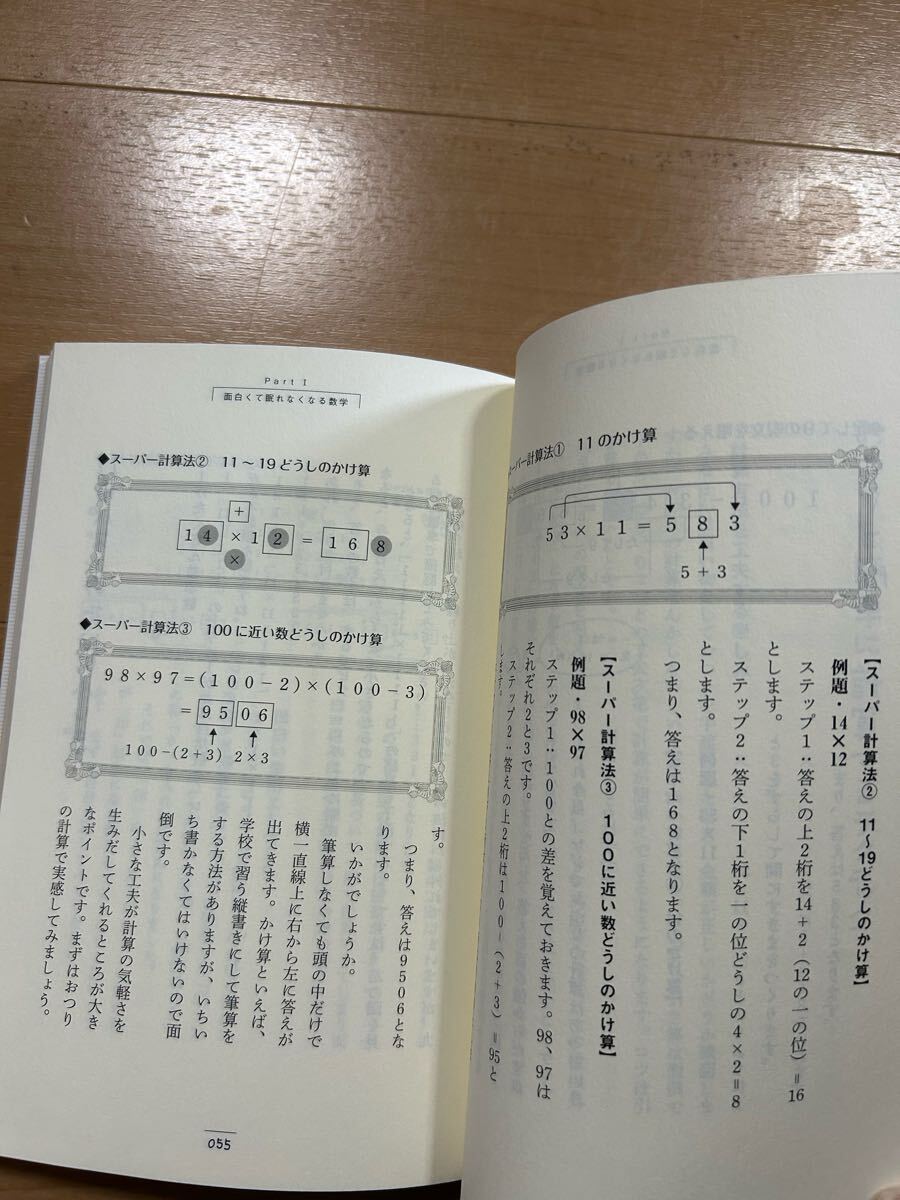 スーパー計算法① 11のかけ算
53×11=583
5+3
【スーパー計算法② 11〜19どうしのかけ算】
例題・14×12
ステップ1:答えの上2桁を14+2(12の一の位)=16
とします。
ステップ2:答えの下1桁を一の位どうしの4×2=8
とします。
つまり、答えは168となります。
【スーパー計算法③ 100に近い数どうしのかけ算】
例題・98×97
ステップ1:100との差を覚えておきます。98、97は
それぞれ2と3です。
ステップ2:答えの上2桁は100-(2+3)=95と
します。
Part I
面白くて眠れなくなる数学
◆スーパー計算法② 11〜19どうしのかけ算
+
14×12=168
×
◆スーパー計算法③ 100に近い数どうしのかけ算
98×97=(100-2)×(100-3)
=9506
100-(2+3) 2×3
す。
つまり、答えは9506とな
ります。
いかがでしょうか。
筆算しなくても頭の中だけで
横一直線上に右から左に答えが
出てきます。かけ算といえば、
学校で習う縦書きにして筆算を
する方法がありますが、いちい
ち書かなくてはいけないので面
倒です。
小さな工夫が計算の気軽さを
生みだしてくれるところが大き
なポイントです。まずはおつり
の計算で実感してみましょう。
055